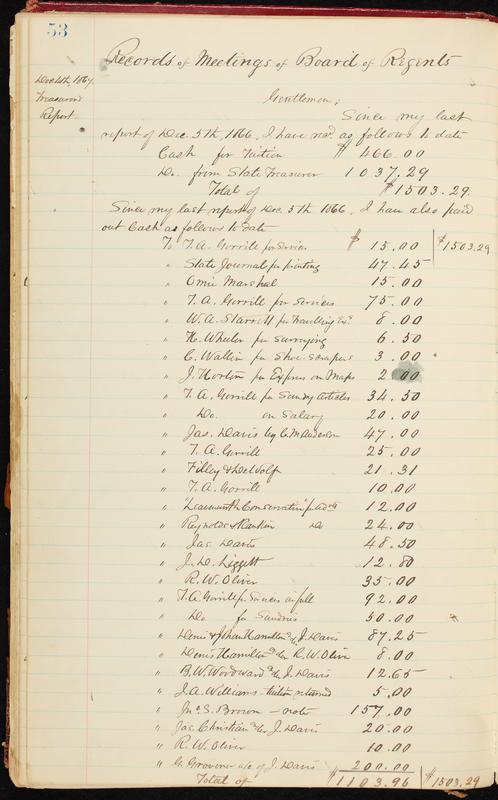 53
Records of Meetings of Board of Regents
Dec 4th, 1867.
Treasurer's
Report.
Gentlemen;
Since my last
report of Dec. 5th, 1866, I have recd. as follows to date
Cash for Tuition $ 466.00
Do. from State Treasurer 1037.29
Total of $1503.29
Since my last report of Dec. 5th 1866, I have also paid
out Cash as follows to date
To T.A. Gorrill for Services $ 15.00 $1503.29
" State Journal for printing 47.45
" Omie Marshal 15.00
" T.A. Gorrill for Services 75.00
" W.A. Starrett for Travelling Exs. 8.00
" H. Wheeler for Surveying 6.50
" C. Wallin for Shoe Scrapers 3.00
" J. Horton for Express on Maps 2.00
" T.A. Gorrill for Sundry Articles 34.50
" Do. on Salary 20.00
" Jas. Davis by C. M Anderson 47.00
" T.A. Gorrill 25.00
" Filley & DeWolf 21.31
" T.A. Gorrill 10.00
" "Leavenworth Conservative" for Advts 12.00
" Reynolds & Rankin Do 24.00
" Jas Davis 48.50
" J.D. Liggett 12.80
" R.W. Oliver 35.00
" T.A. Gorrill for Services in full 92.00
" Do for Sundries 50.00
" Denis & Hamilton J. Davis 87.25
" Denis Hamilton R.W. Oliver 8.00
" B.W. Woodward J. Davis 12.65
" J.A. Williams - tuition returned 5.00
" Jno S. Brown - note 157.00
" Jas. Christian J. Davis 20.00
" R.W. Oliver 10.00
" G. Grovenor a/c of J. Davis 200.00
Total of $1103.96 $1503.29